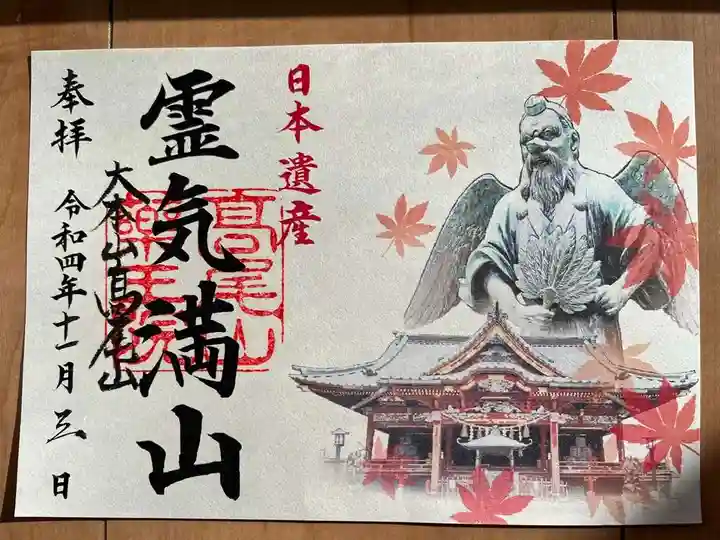 日本遺産
霊気満山
大本山高尾山
奉拝
令和四年十一月三日
高尾山
薬王院